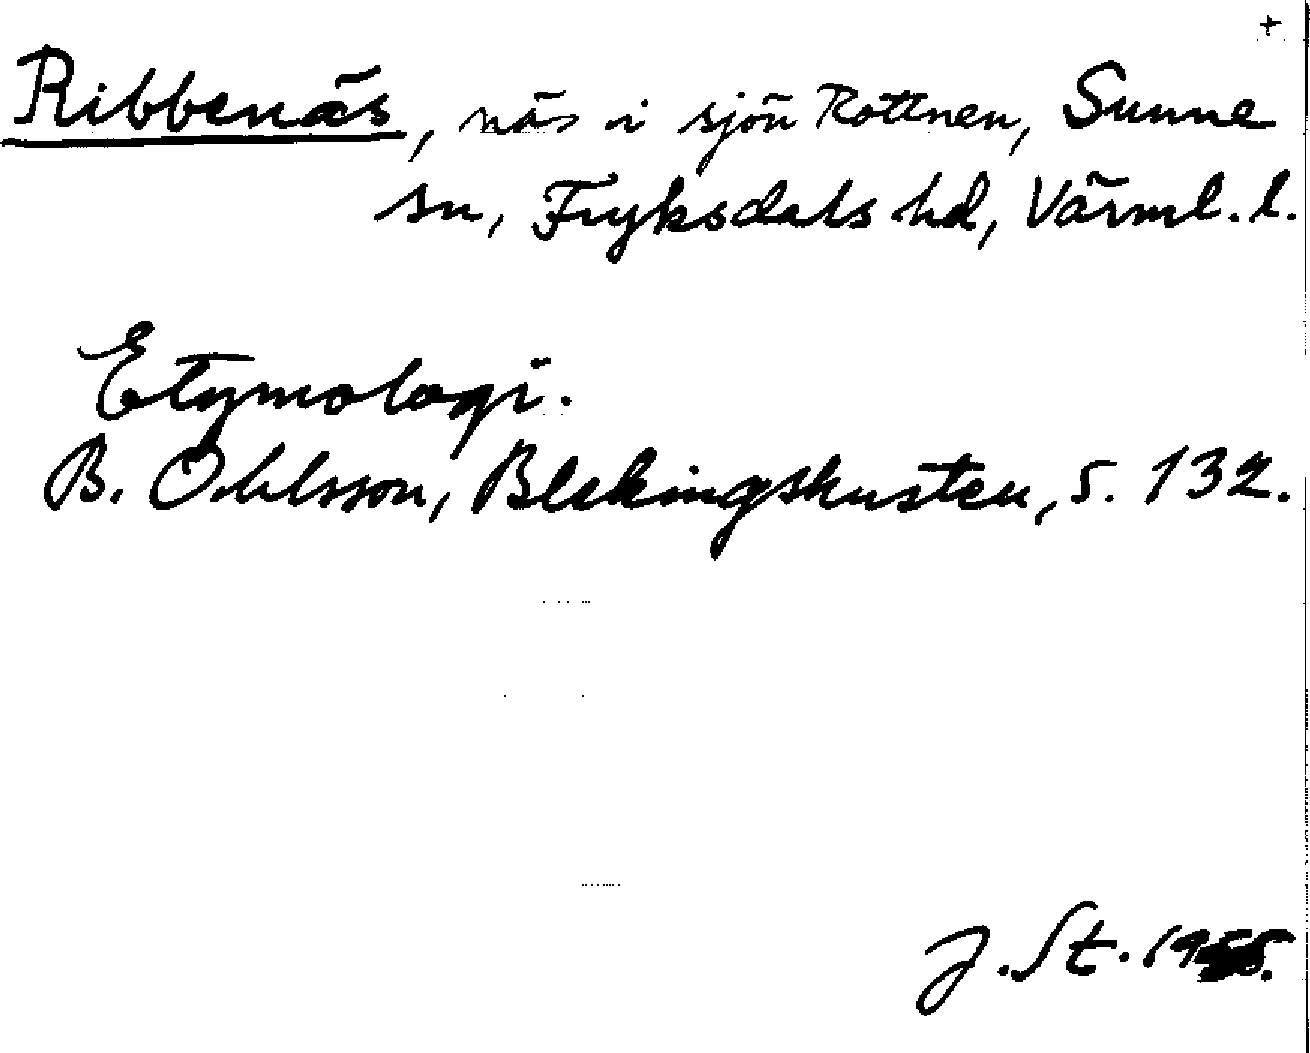 +
Ribbenäs, näs i sjön Rottnen, Sunne
sn, Fryksdals hd, Värml. l.
Etymologi.
B. Ohlsson, Blekingskusten, s. 132.
J. St. 1955.